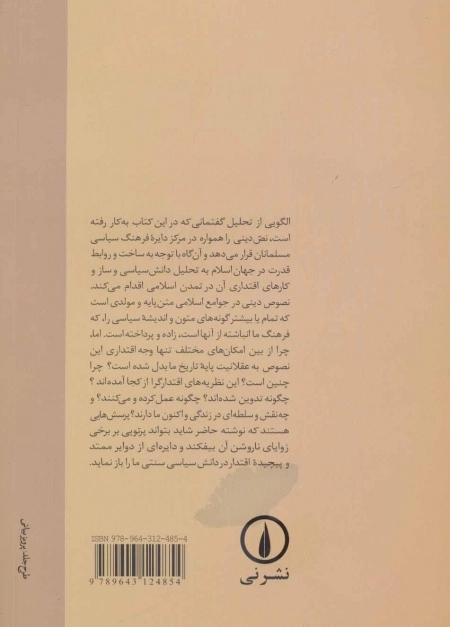 الگویی از تحلیل گفتمانی که در این کتاب به‌کار رفته
است، نصّ دینی را همواره در مرکز دایرهٔ فرهنگ سیاسی
مسلمانان قرار می‌دهد و آن‌گاه با توجه به ساخت و روابط
قدرت در جهان اسلام به تحلیل دانش سیاسی و ساز و
کارهای اقتداری آن در تمدن اسلامی اقدام می‌کند.
نصوص دینی در جوامع اسلامی متن پایه و مولدی است
که تمام یا بیشتر گونه‌های متون و اندیشهٔ سیاسی را، که
فرهنگ ما انباشته از آنها است، زاده و پرداخته است. اما،
چرا از بین امکان‌های مختلف تنها وجه اقتداری این
نصوص به عقلانیت پایهٔ تاریخ ما بدل شده است؟ چرا
چنین است؟ این نظریه‌های اقتدارگرا از کجا آمده‌اند؟
چگونه تدوین شده‌اند؟ چگونه عمل کرده و می‌کنند؟ و
چه‌نقش و سلطه‌ای در زندگی و اکنون ما دارند؟ پرسش‌هایی
هستند که نوشته حاضر شاید بتواند پرتویی بر برخی
زوایای ناروشن آن بیفکند و دایره‌ای از دوایر ممتد
و پیچیدهٔ اقتدار در دانش سیاسی سنتی ما را باز نماید.
ISBN 978-964-312-485-4
9 789643 124854
نشر نی
طرح جلد: پرویز بیانی